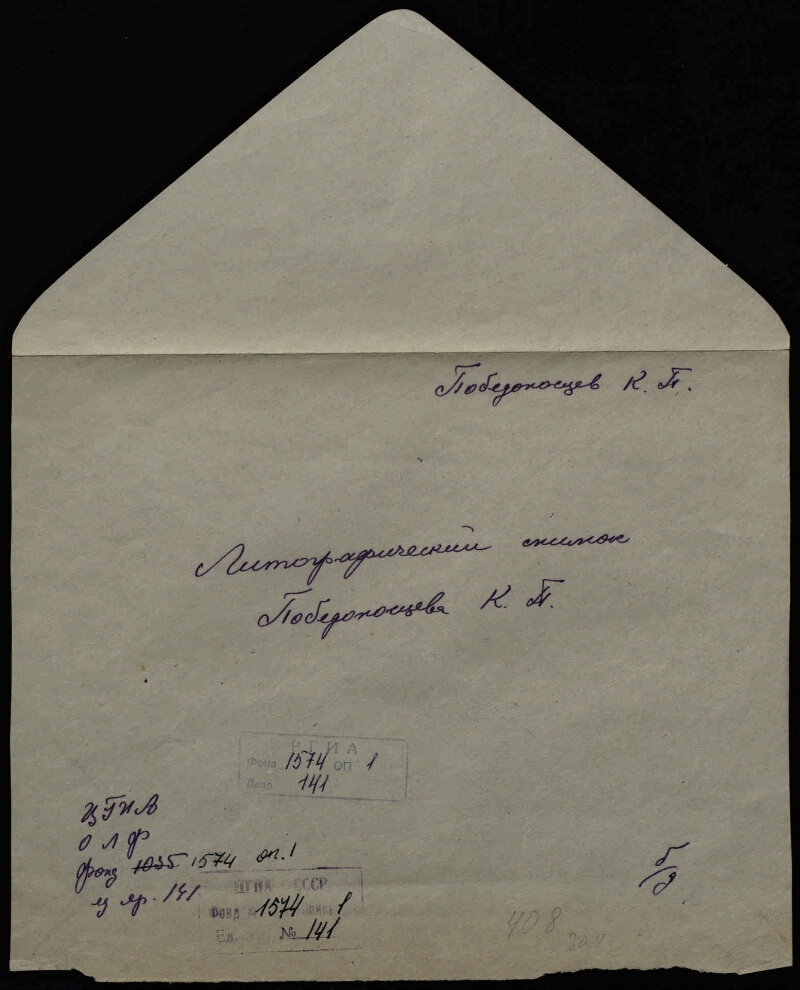 Победоносцев К. П.
Литографический снимок
Победоносцева К. П.
РГИА
Фонд 1574 ОП 1
Дело 141
ЦГИА
О Л Ф
фонд 1035 1574 оп. 1
ед хр. 141
ЦГИА СССР
ФОНД 1574 опись 1
Ед. № 141
б/д
408